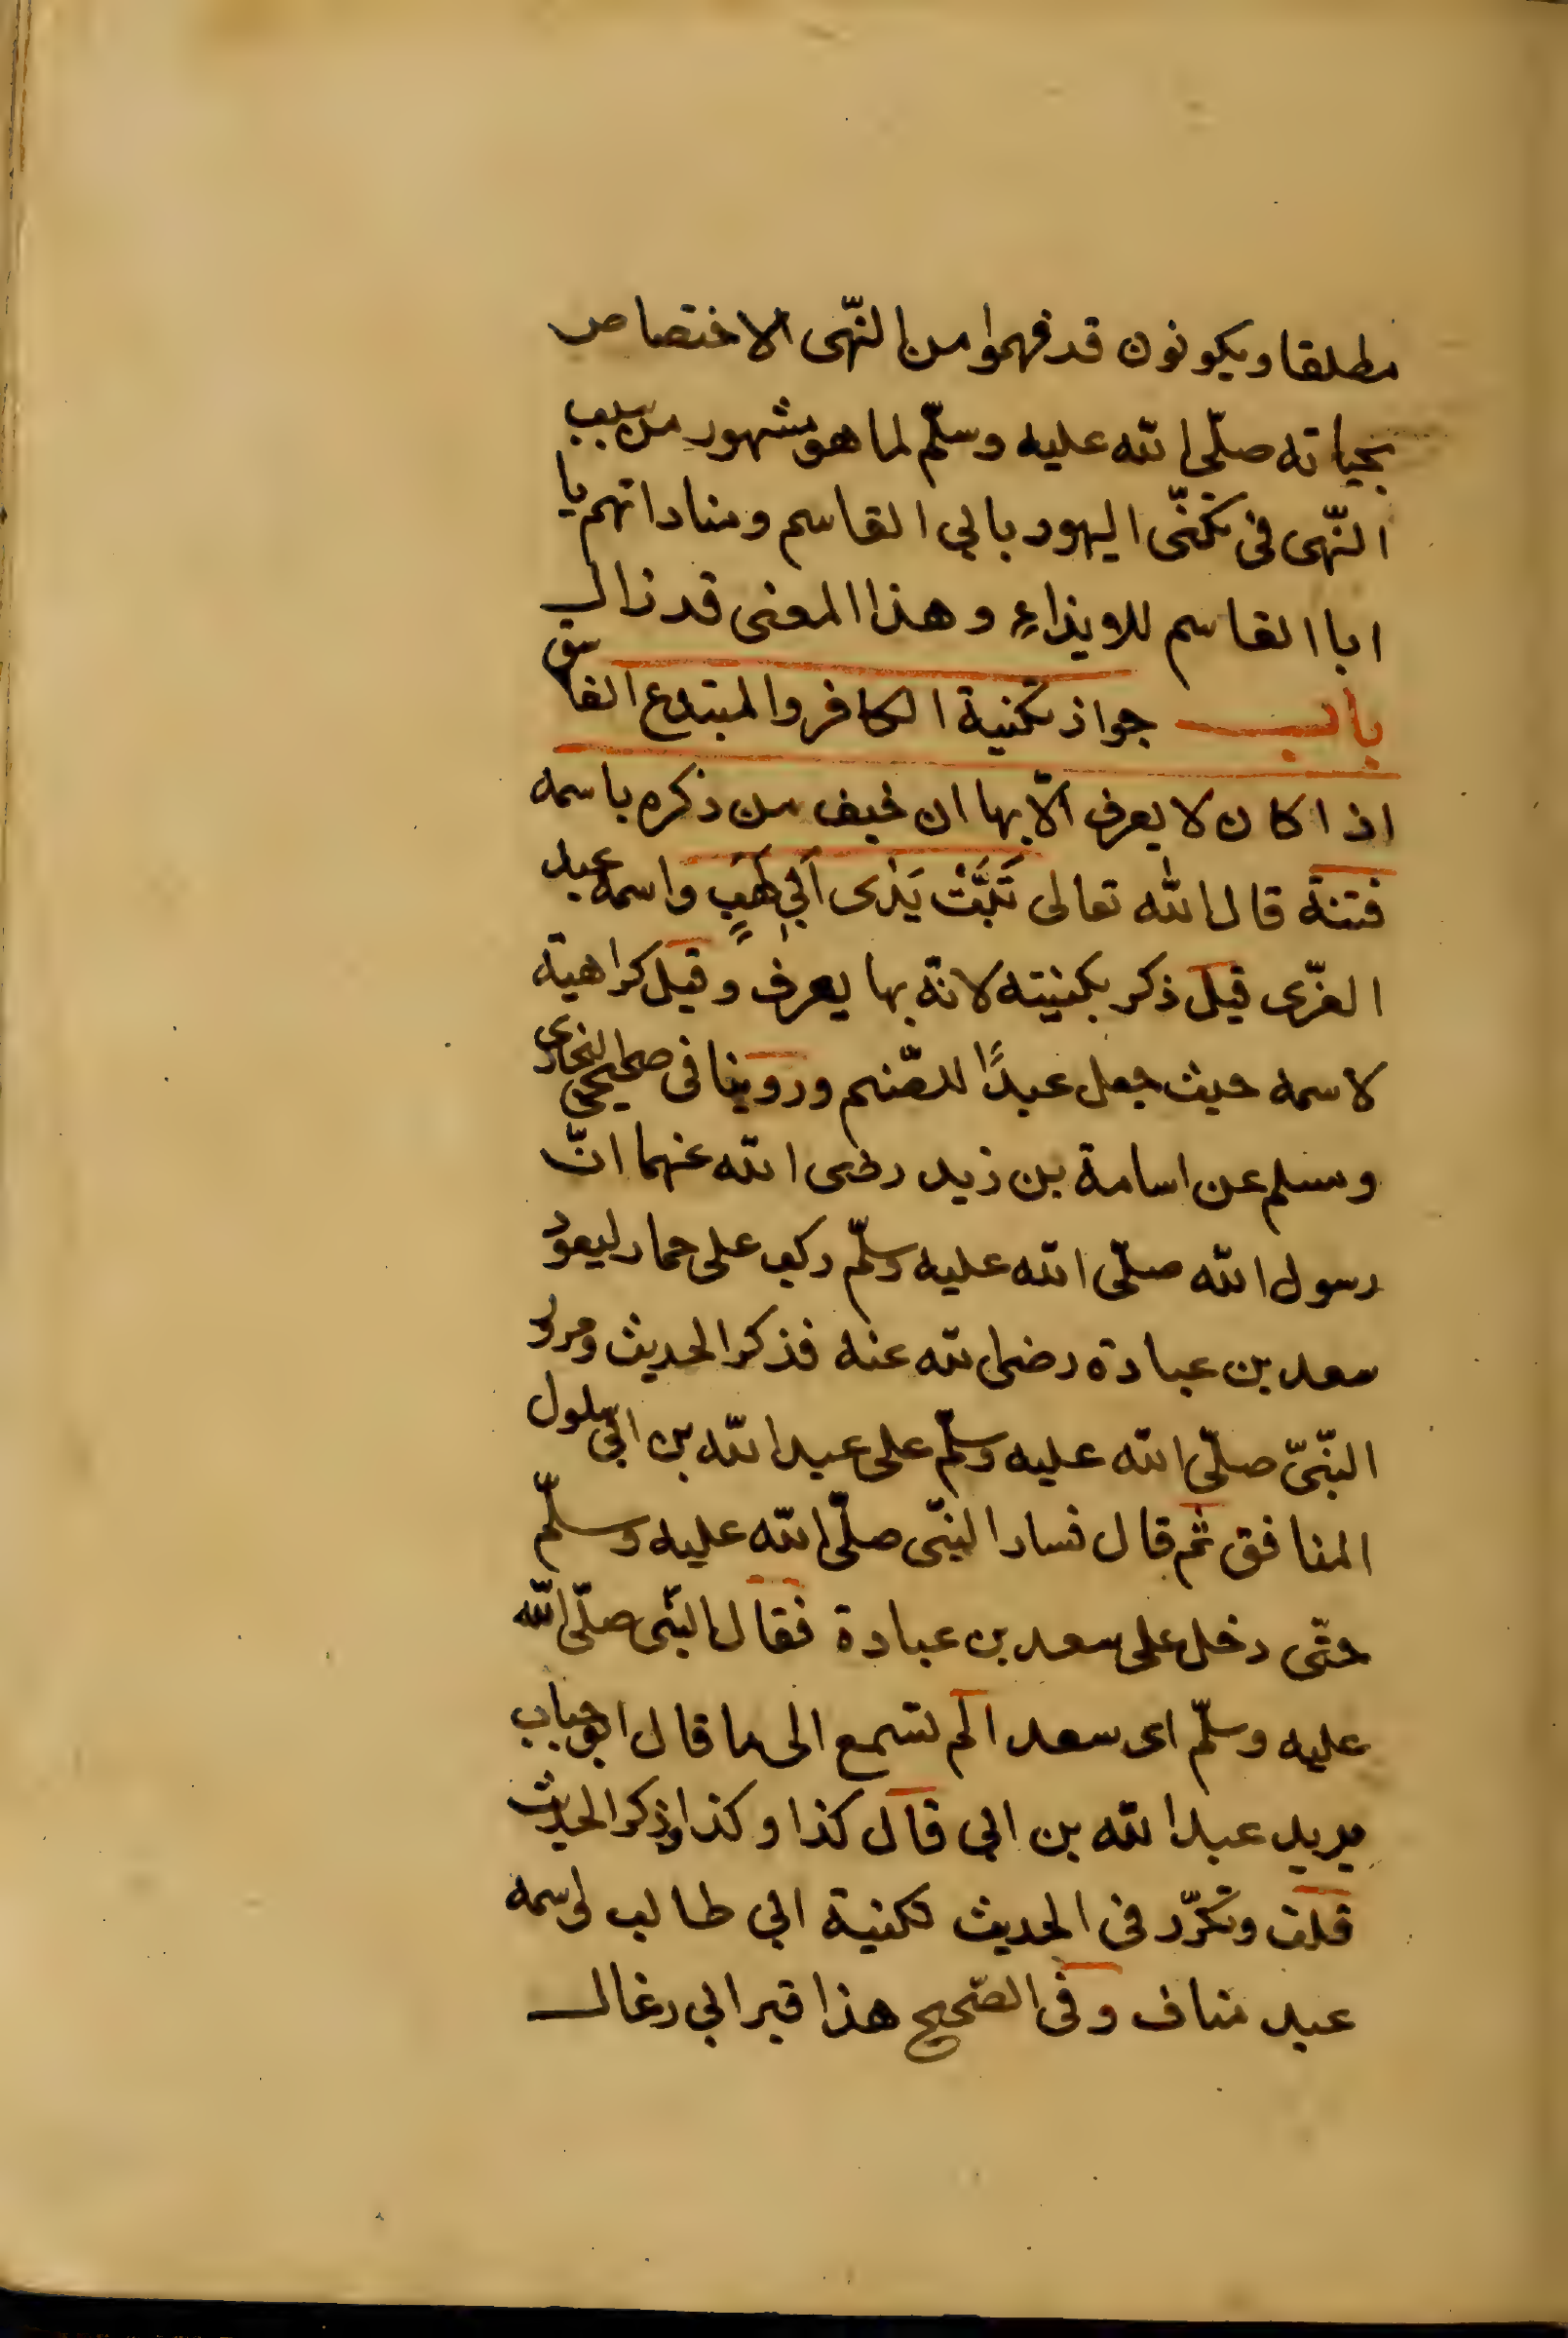 مطلقا ويكونون قد فهموا من النّهى الاختصاص
بحياته صلّى الله عليه وسلّم لما هو مشهور من سبب
النّهى فى تكنّى اليهود بابى القاسم ومناداتهم يا
ابا القاسم للايذاءِ وهذا المعنى قد زال
باب جواز تكنية الكافر والمبتدع الفاسق
اذا كان لا يعرف الّا بها ان خيف من ذكره باسمه
فتنة قال الله تعالى تَبَّتْ يَدٰى اَبِى لَهَبٍ واسمه عبد
العزّى قيل ذكر بكنيته لانّه بها يعرف وقيل كراهية
لاسمه حيث جعل عبدًا للصّنم وروينا فى صحيحى البخارى
ومسلم عن اسامة بن زيد رضى الله عنهما انّ
رسول الله صلّى الله عليه وسلّم ركب على حمار ليعود
سعد بن عبادة رضى الله عنه فذكر الحديث ومرور
النّبىّ صلّى الله عليه وسلّم على عبد الله بن ابىّ سلول
المنافق ثم قال فسار النبّى صلّى الله عليه وسلّم
حتّى دخل على سعد بن عبادة فقال النبّى صلّى الله
عليه وسلّم اى سعد الم تسمع الى ما قال ابو حباب
يريد عبد الله بن ابى قال كذا وكذا وذكر الحديث
قلت وتكرّر فى الحديث تكنية ابى طالب لاسمه
عبد مناف وفى الصّحيح هذا قبر ابى رغال